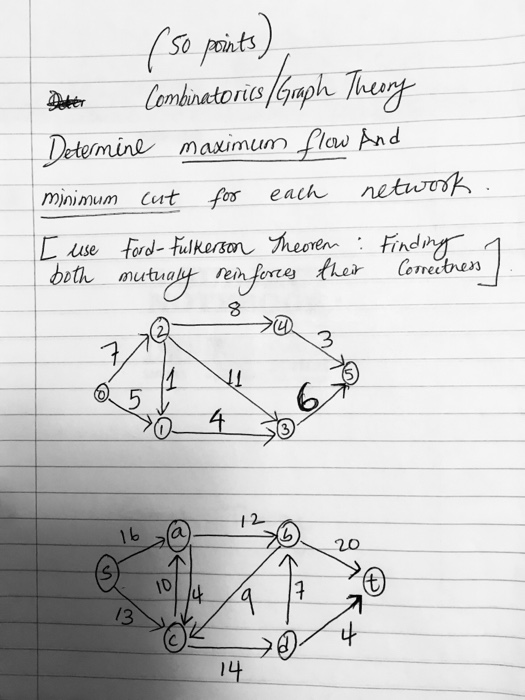 (50 points)
Combinatorics/Graph Theory
Determine maximum flow And
minimum cut for each network.
[ use Ford-Fulkerson Theorem : Finding
both mutualy reinforces their Correctness ]
8
2
4
7
3
1
11
5
0
5
6
4
1
3
16
a
12
b
20
s
10
4
9
7
t
13
4
c
d
14